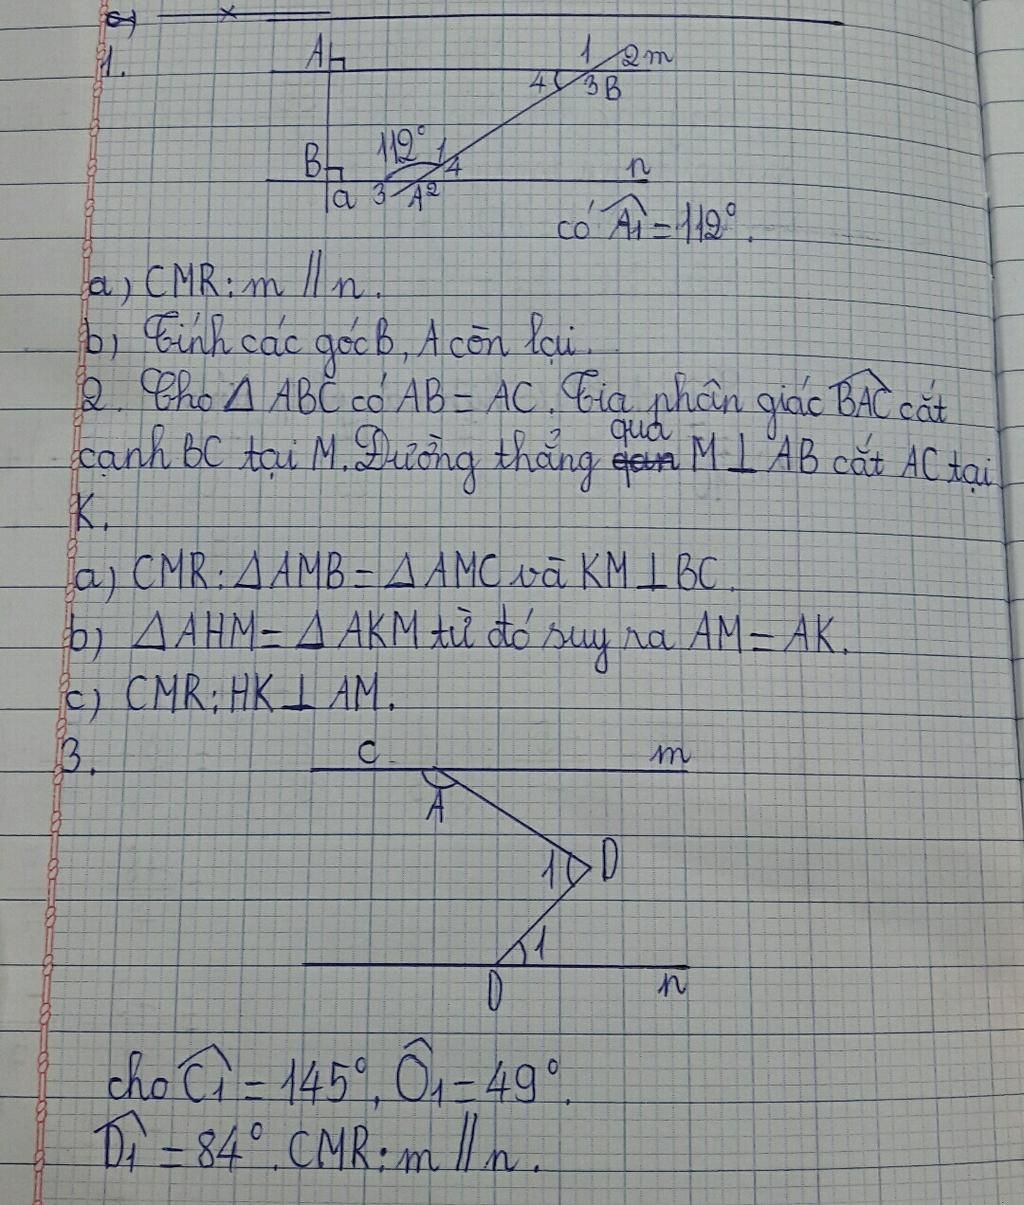 1.
A 1 2 m
4 3 B
112° 1
B 4 n
a 3 A 2
có Â1 = 112°.
a) CMR: m // n.
b) Tính các góc B, A còn lại.
2. Cho Δ ABC có AB = AC. Tia phân giác BAC cắt
cạnh BC tại M. Đường thẳng qua M ⊥ AB cắt AC tại
K.
a) CMR: Δ AMB = Δ AMC và KM ⊥ BC.
b) Δ AHM = Δ AKM từ đó suy ra AM = AK.
c) CMR: HK ⊥ AM.
3. C m
A
1 D
1
D n
cho Ĉ1 = 145°, Ô1 = 49°.
D̂1 = 84°. CMR: m // n.